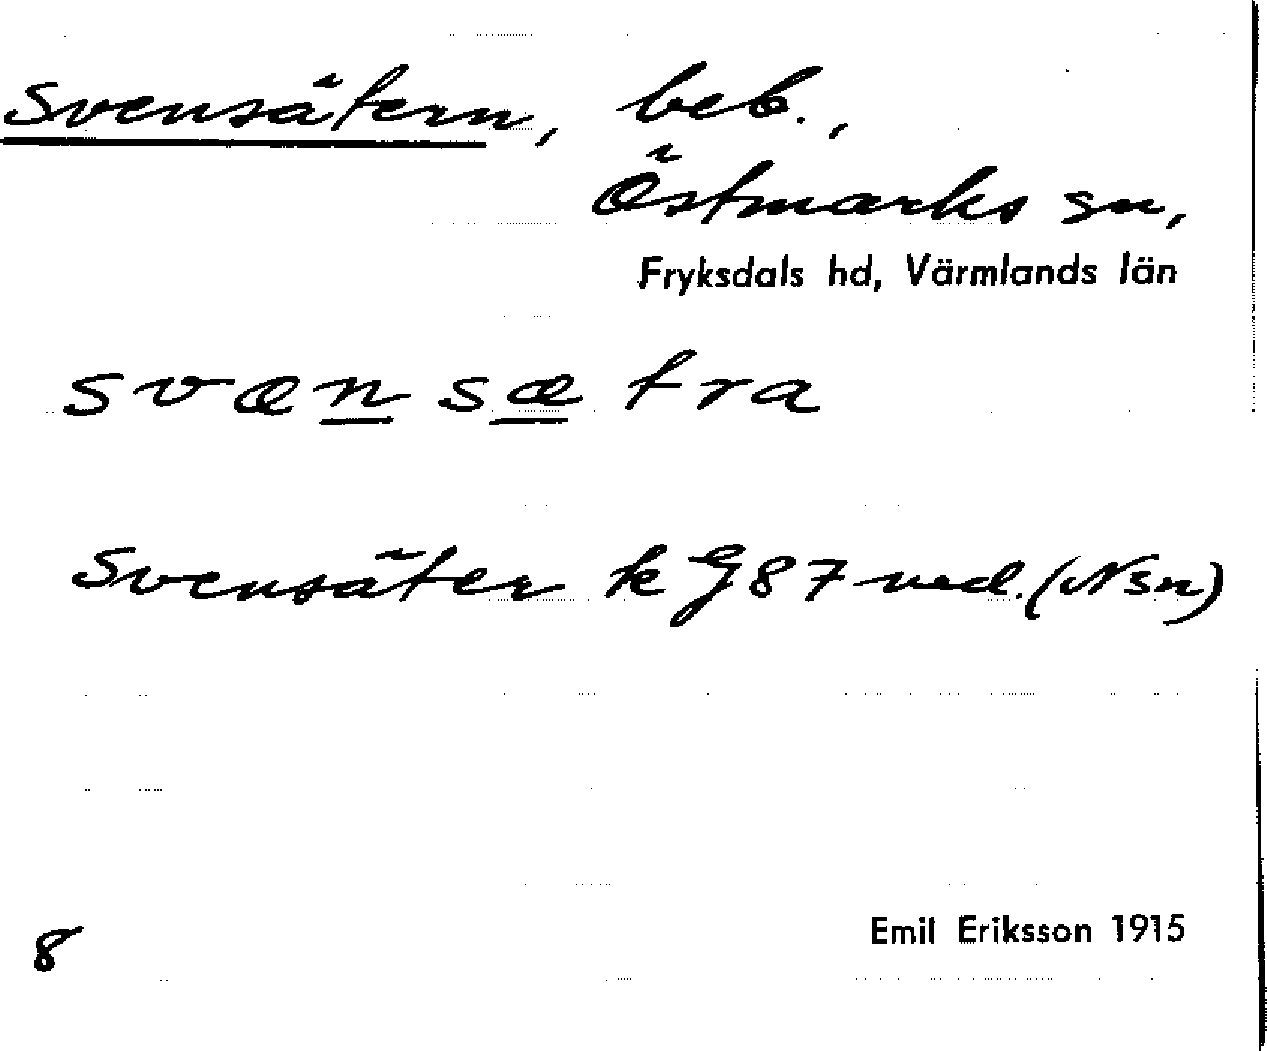 Svensätern, beb.,
Östmarks sn,
Fryksdals hd, Värmlands län
svænsætra
Svensäter k G87 ned. (N sn)
8
Emil Eriksson 1915